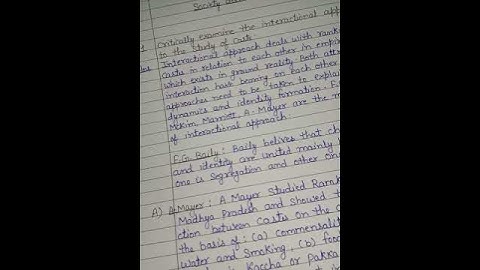 Society
Critically examine the interactional app
to the study of Caste.
Interactional approach deals with rank
Castes in relation to each other in empir
which exists in ground reality. Both att
interaction have bearing on each other
approaches need to be taken to explai
dynamics and identity formation. F.
Mckim Marriott, A. Mayer are the m
of interactional approach.
F.G. Baily : Baily belives that ch
and identity are united mainly b
one is segregation and other on
A) A. Mayer : A Mayer studied Ramk
Madhya Pradesh and showed t
ction between castes on the
the basis of : (a) commensalit
water and Smoking, (b) food
Kaccha or pakka